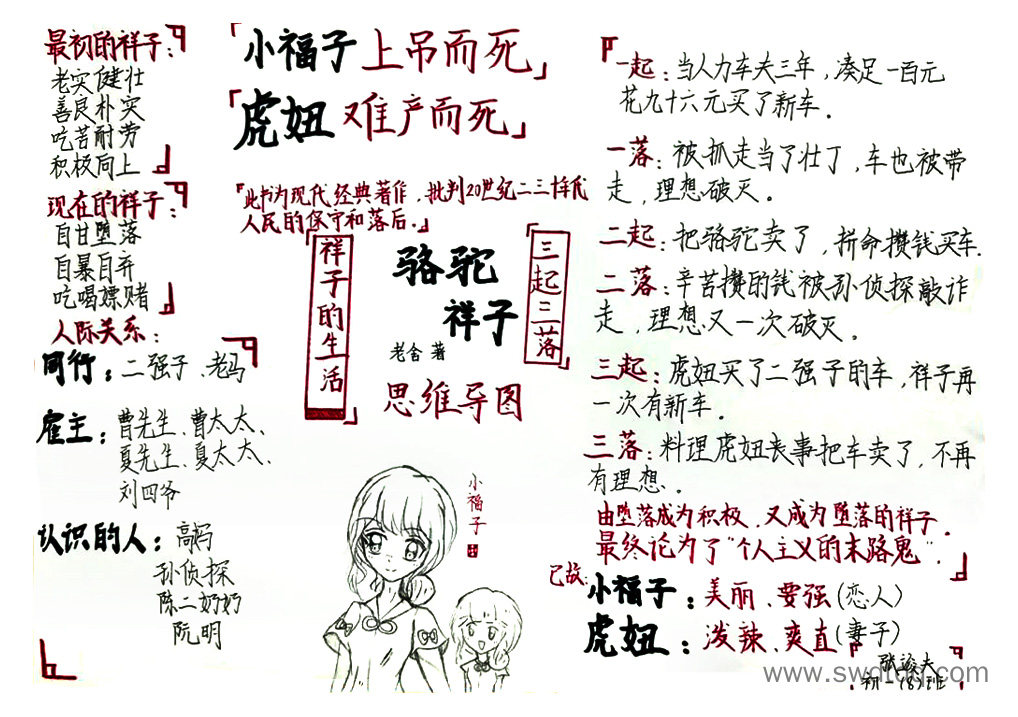 最初的祥子：
老实健壮
善良朴实
吃苦耐劳
积极向上
现在的祥子：
自甘堕落
自暴自弃
吃喝嫖赌
人际关系：
同行：二强子、老马
雇主：曹先生、曹太太、
夏先生、夏太太、
刘四爷
认识的人：高妈
孙侦探
陈二奶奶
阮明
「小福子上吊而死」
「虎妞难产而死」
『此书为现代经典著作，批判20世纪二三十年代
人民的保守和落后.』
祥子的生活
骆驼
祥子
老舍 著
思维导图
三起三落
小福子
一起：当人力车夫三年，凑足一百元
花九十六元买了新车.
一落：被抓走当了壮丁，车也被带
走，理想破灭.
二起：把骆驼卖了，拼命攒钱买车.
二落：辛苦攒的钱被孙侦探敲诈
走，理想又一次破灭.
三起：虎妞买了二强子的车，祥子再
一次有新车.
三落：料理虎妞丧事把车卖了，不再
有理想.
由堕落成为积极，又成为堕落的祥子.
最终论为了"个人主义的末路鬼".
已故：
小福子：美丽、要强(恋人)
虎妞：泼辣、爽直(妻子)
初一(8)班